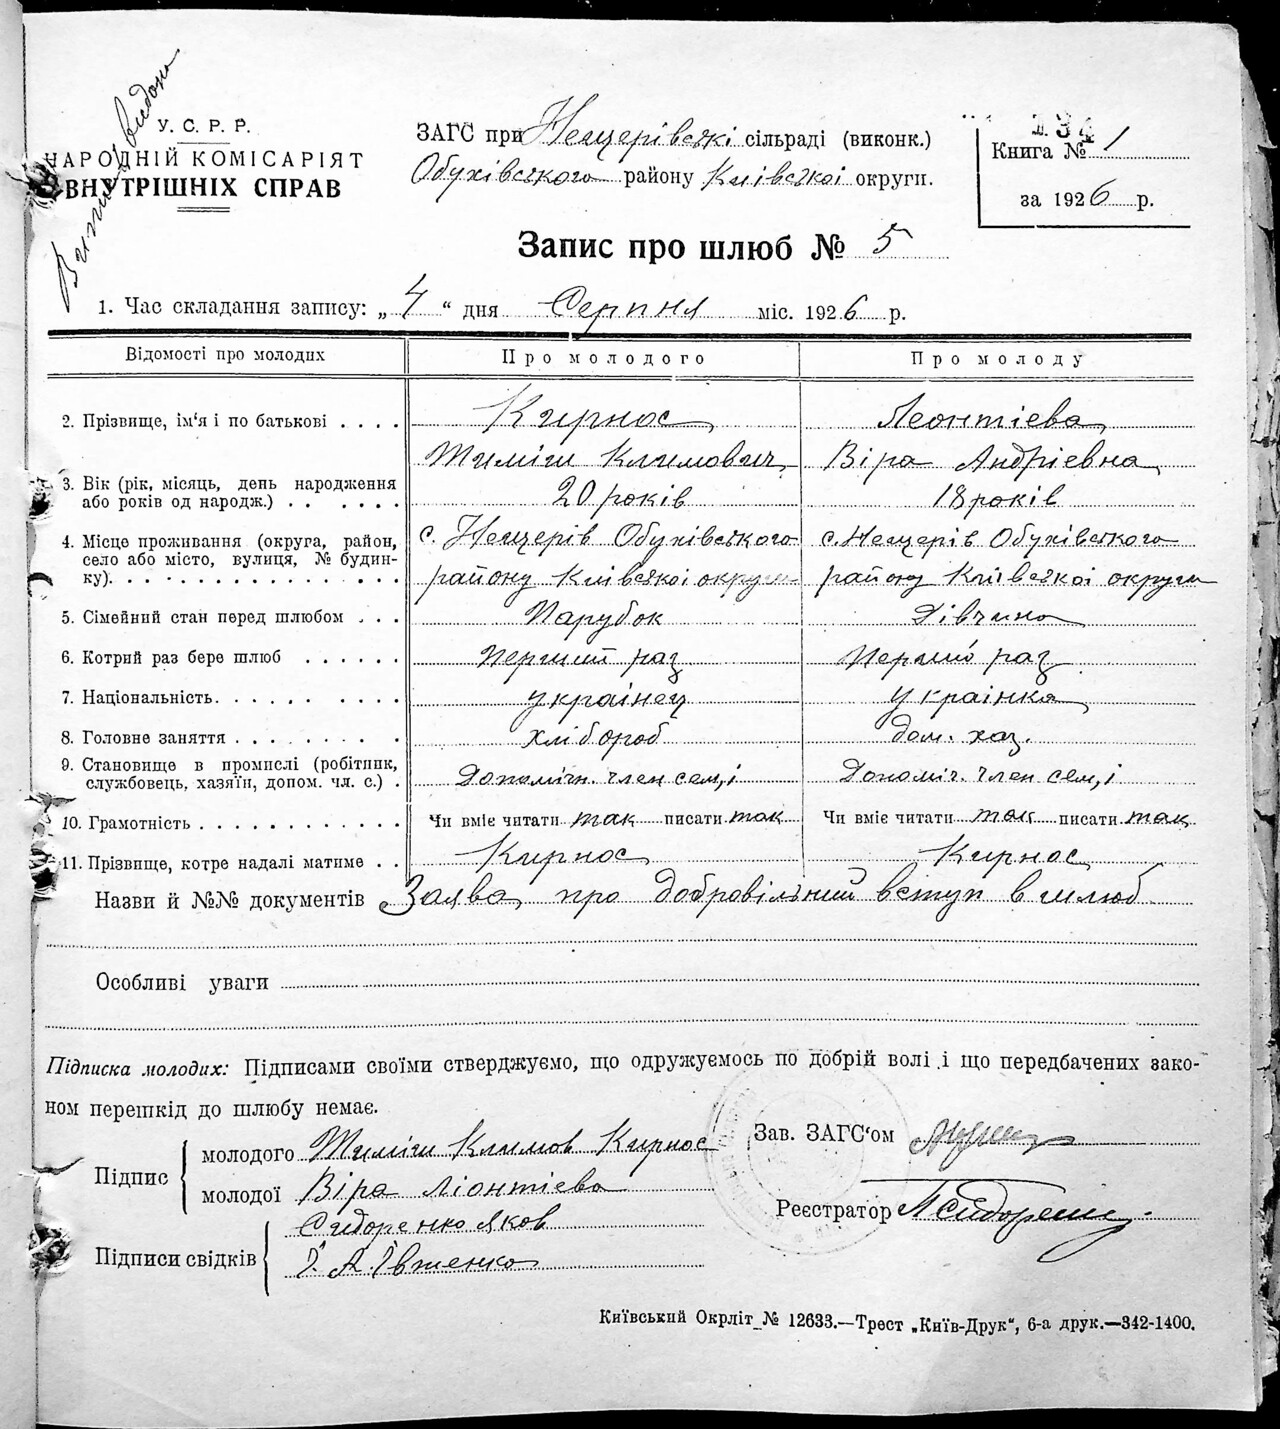 Витяг видано
У. С. Р. Р.
НАРОДНІЙ КОМІСАРІЯТ
ВНУТРІШНІХ СПРАВ
ЗАГС при Нещерівські сільраді (виконк.)
Обухівського району Київської округи.
134
Книга № 1
за 1926 р.
Запис про шлюб № 5
1. Час складання запису: „ 4 “ дня Серпня міс. 1926 р.
Відомості про молодих Про молодого Про молоду
2. Прізвище, ім‘я і по батькові . . . . Кирнос Леонтієва
Тиміш Климович Віра Андріевна
3. Вік (рік, місяць, день народження
або років од народж.) . . . . . . 20 років 18 років
4. Місце проживання (округа, район, с. Нещерів Обухівського с. Нещерів Обухівського
село або місто, вулиця, № будин-
ку). . . . . . . . . . . . . . . району Київської округи району Київської округи
5. Сімейний стан перед шлюбом . . . Парубок Дівчина
6. Котрий раз бере шлюб . . . . . . Перший раз Перший раз
7. Національність. . . . . . . . . . українец українка
8. Головне заняття . . . . . . . . . хлібороб дом. хаз.
9. Становище в промислі (робітник,
службовець, хазяїн, допом. чл. с.) . Допоміжн. член сем,і Допоміч. член сем,і
10. Грамотність . . . . . . . . . . . . Чи вміє читати так писати так Чи вміє читати так писати так
11. Прізвище, котре надалі матиме . . Кирнос Кирнос
Назви й №№ документів Заява про добровільний вступ в шлюб
Особливі уваги
Підписка молодих: Підписами своїми стверджуємо, що одружуємось по добрій волі і що передбачених зако-
ном перешкід до шлюбу немає.
Підпис
молодого Тиміш Климов Кирнос
молодої Віра Ліонтієва
Зав. ЗАГС‘ом
Реєстратор П Сидоренко
Підписи свідків
Сидоренко Яков
Ї. А. Ївженко
Київський Окрліт № 12633.—Трест „Київ-Друк“, 6-а друк.—342-1400.